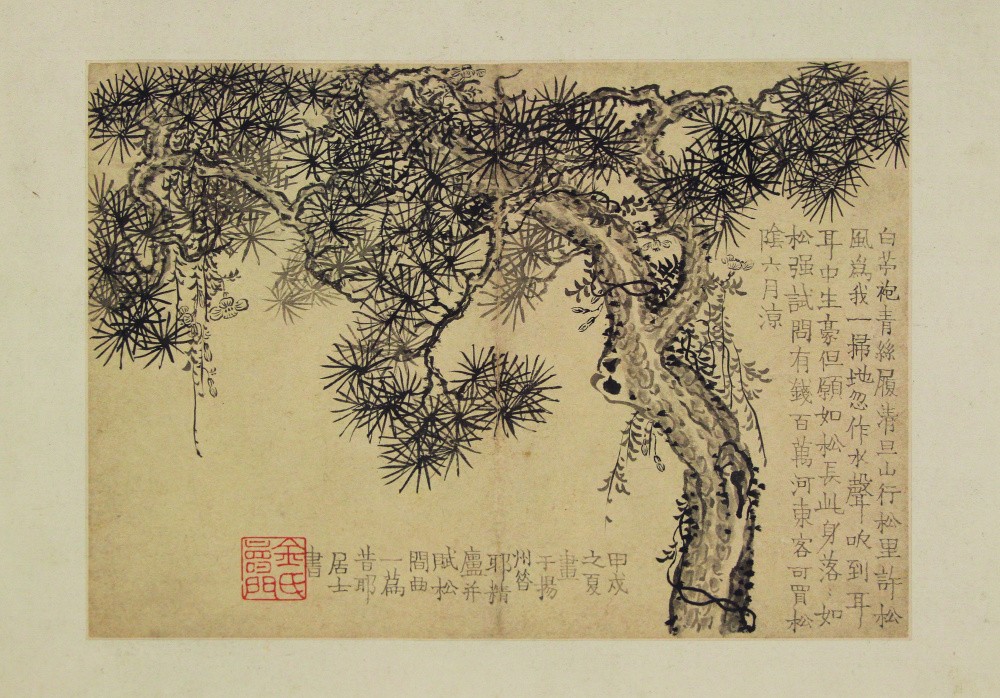 白苧袍青絲履清旦山行松里許松
風爲我一掃地忽作水聲吹到耳
耳中生豪但願如松長此身落〻如
松强試問有錢百萬河東客可買松
陰六月涼
甲戌
之夏
畫
于揚
州昔
耶精
廬并
賦松
間曲
一爲
昔耶
居士
書
金氏
壽門